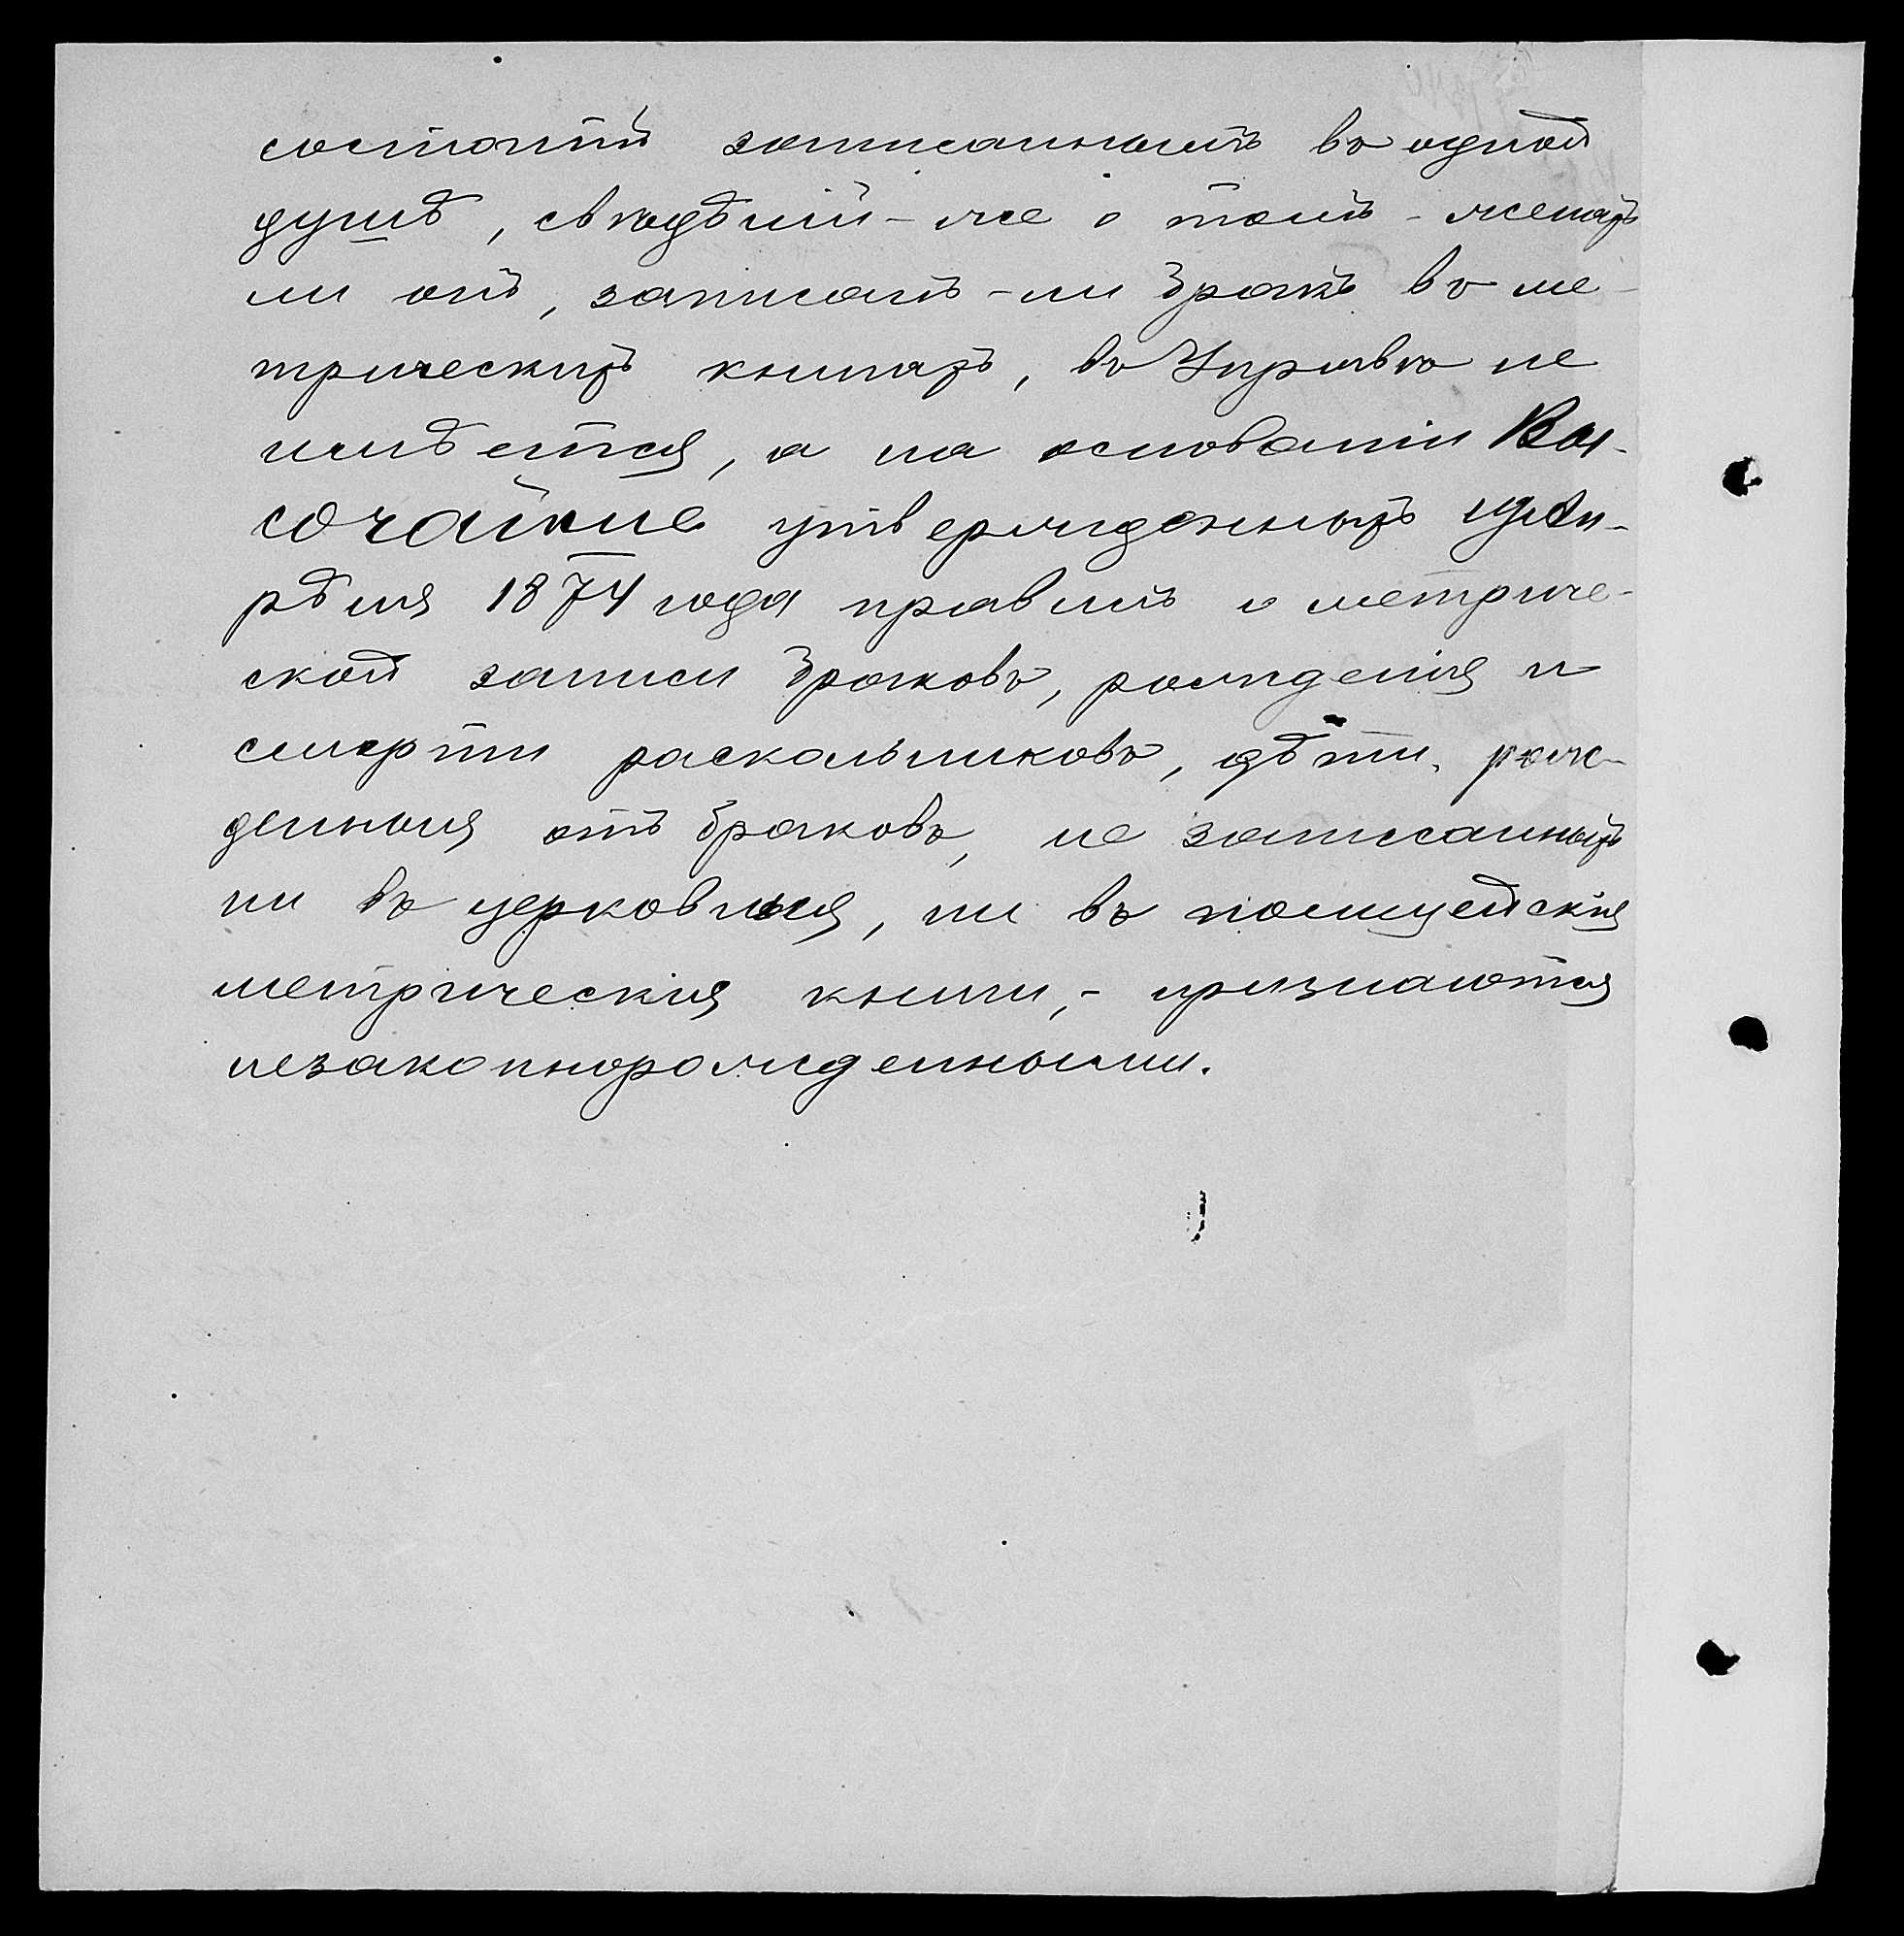 состоитъ записаннымъ въ одной
душѣ, свѣдѣній-же о томъ-женатъ
ли онъ, записанъ-ли бракъ въ ме-
трическихъ книгахъ, въ Управѣ не
имѣется, а на основаніи Вы-
сочайше утвержденныхъ
1874 года правилъ о метриче-
ской записи браковъ, рожденія и
смерти раскольниковъ, дѣти, рож-
денныя отъ браковъ, не записанныхъ
ни въ церковныя, ни въ полицейскія
метрическія книги,- признаются
незаконнорожденными.